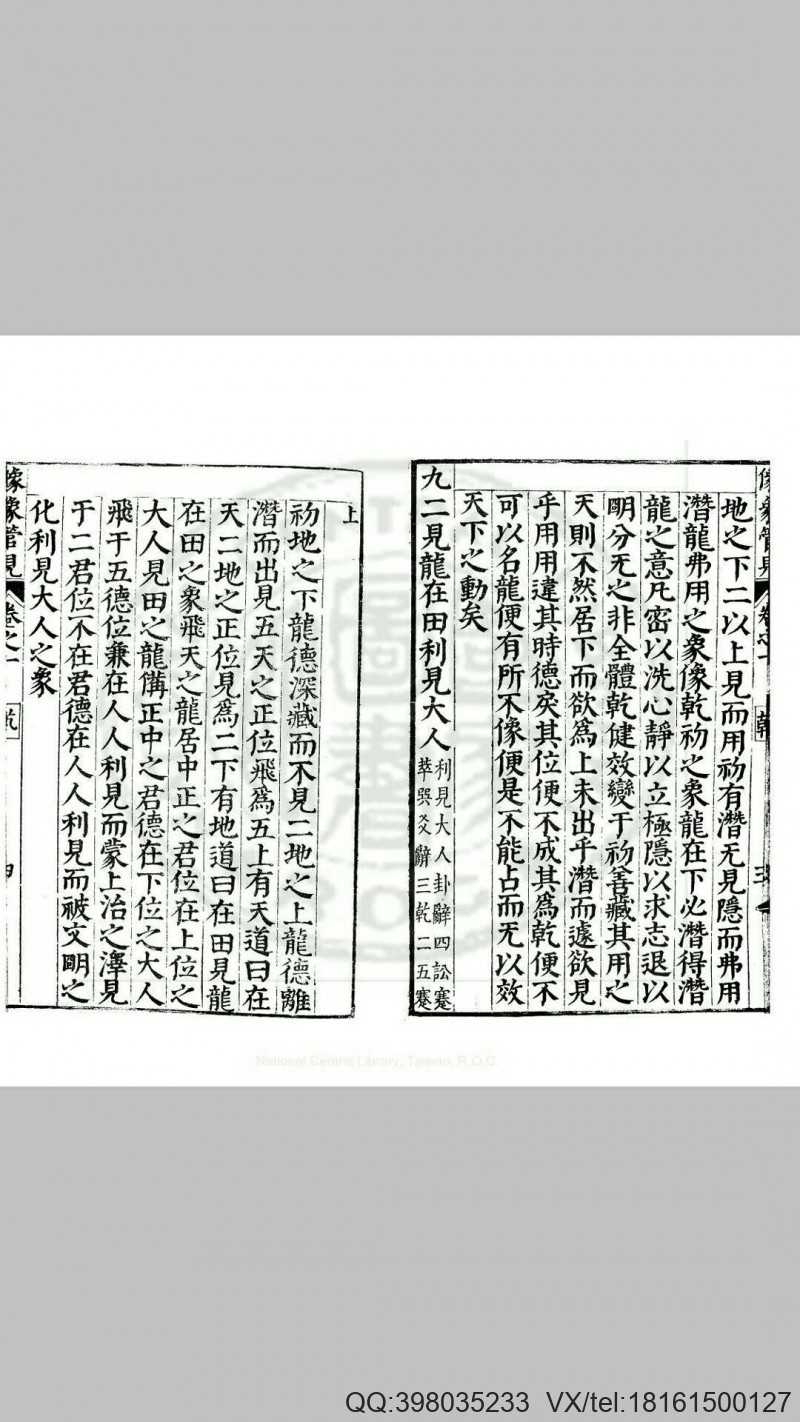 像象管見 卷之一 乾 三
地之下二以上見而用初有潛无見隱而弗用
潛龍弗用之象像乾初之象龍在下必潛得潛
龍之意凡密以洗心靜以立極隱以求志退以
明分无之非全體乾健效變于初善藏其用之
天則不然居下而欲爲上未出乎潛而遽欲見
乎用用違其時德矣其位便不成其爲乾便不
可以名龍便有所不像便是不能占而无以效
天下之動矣
九二見龍在田利見大人
利見大人卦辭四訟蹇
萃巽爻辭三乾二五蹇
上
初地之下龍德深藏而不見二地之上龍德離
潛而出見五天之正位飛爲五上有天道曰在
天二地之正位見爲二下有地道曰在田見龍
在田之象飛天之龍居中正之君位在上位之
大人見田之龍備正中之君德在下位之大人
飛于五德位兼在人人利見而蒙上治之澤見
于二君位不在君德在人人利見而被文明之
化利見大人之象
像象管見 卷之一 乾 四
National Central Library, Taiwan, R.O.C
QQ:398035233 VX/tel:18161500127